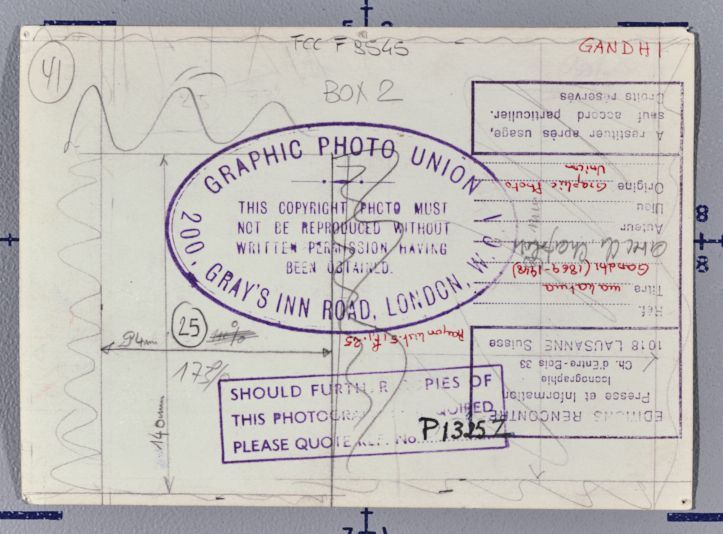 FCC F 8545
GANDHI
41
BOX 2
GRAPHIC PHOTO UNION
THIS COPYRIGHT PHOTO MUST
NOT BE REPRODUCED WITHOUT
WRITTEN PERMISSION HAVING
BEEN OBTAINED.
200, GRAY'S INN ROAD, LONDON, W.C.1
25
94mm
178%
140mm
SHOULD FURTHER COPIES OF
THIS PHOTOGRAPH REQUIRED
PLEASE QUOTE REF. No. P13257
EDITIONS RENCONTRE
Presse et Information
Iconographie
Ch. d'Entre-Bois 33
1018 LAUSANNE Suisse
Réf.
Titre mahatma
Gandhi (1869-1948)
avec Chaplin
Auteur
Lieu
Origine Graphic Photo
Union
A restituer après usage,
sauf accord particulier.
Droits réservés
8
8